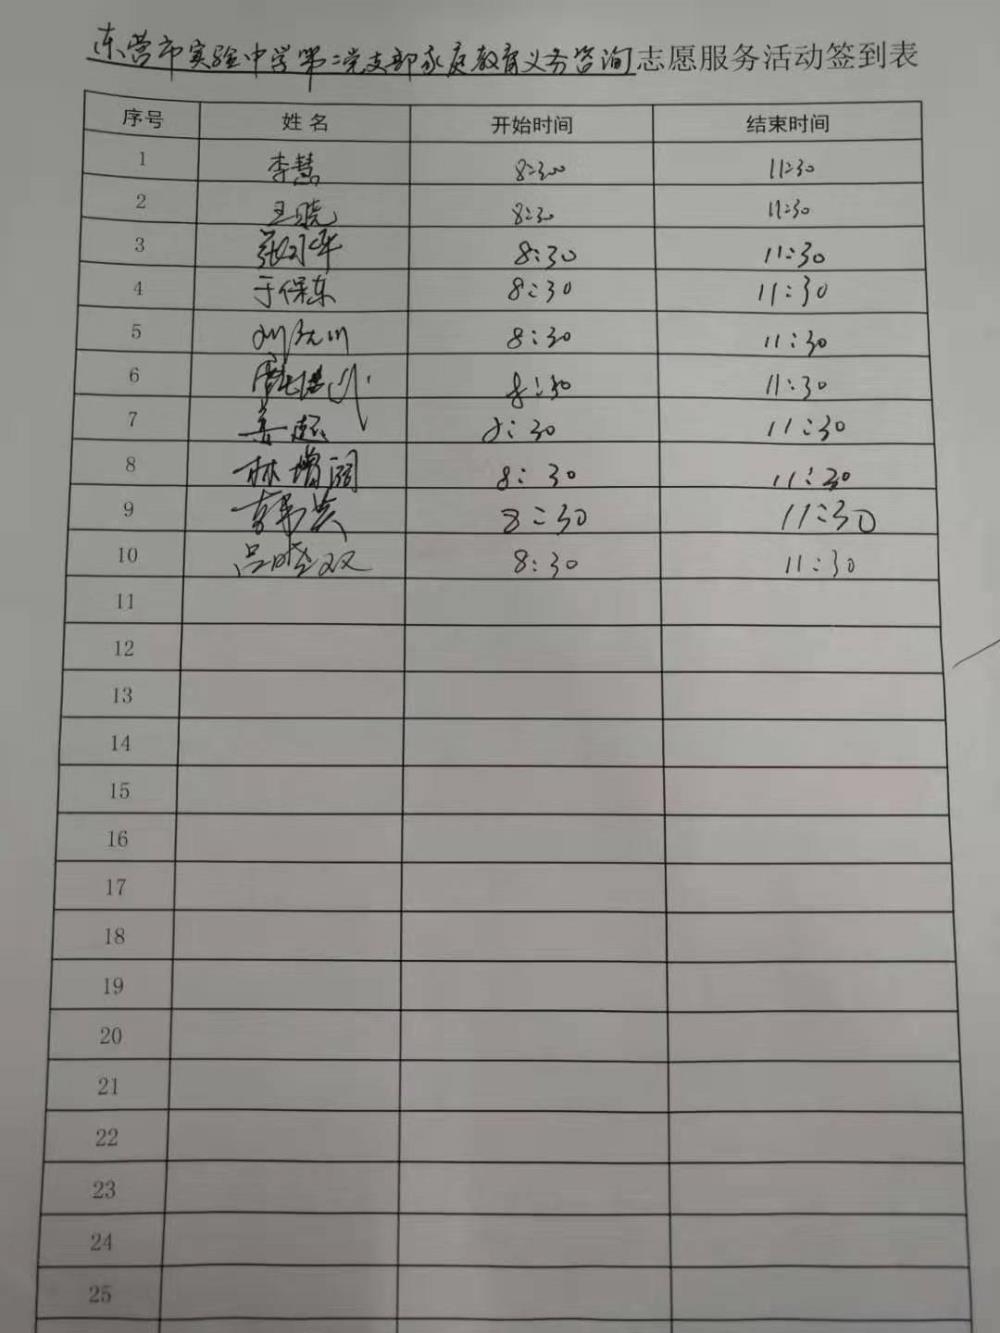 东营市实验中学第二党支部家庭教育义务咨询志愿服务活动签到表
序号 姓名 开始时间 结束时间
1 李慧 8:30 11:30
2 王晓 8:30 11:30
3 张 华 8:30 11:30
4 于保东 8:30 11:30
5 刘 川 8:30 11:30
6 8:30 11:30
7 姜 8:30 11:30
8 林增阔 8:30 11:30
9 8:30 11:30
10 吕晓双 8:30 11:30
11
12
13
14
15
16
17
18
19
20
21
22
23
24
25